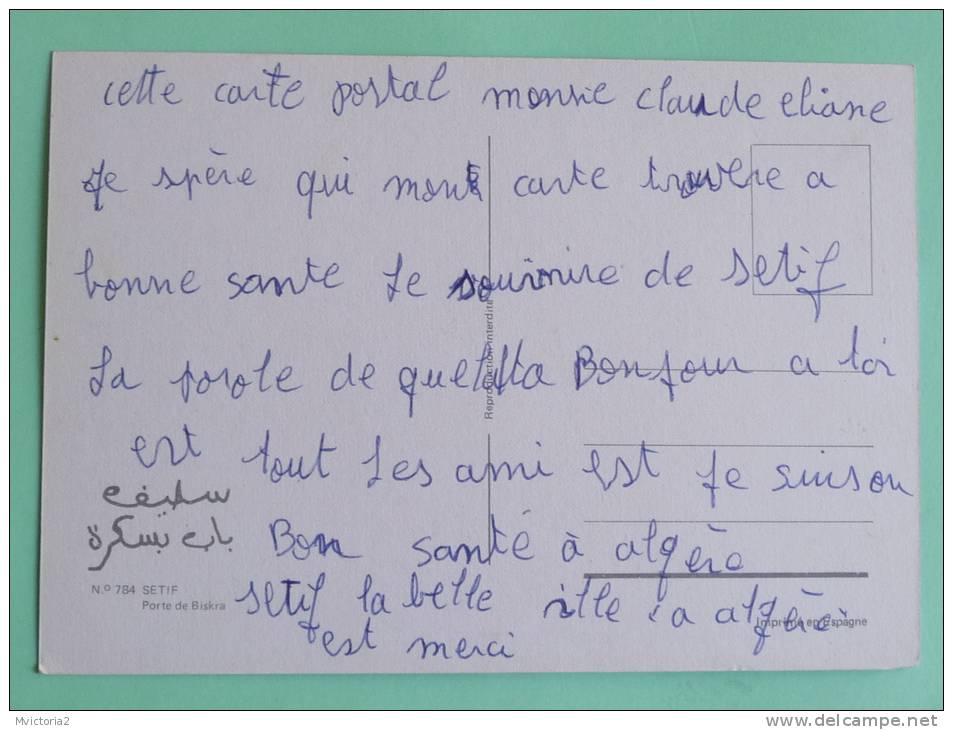 cette carte postal monsie claude eliane
Je spère qui mont carte trouvere a
bonne sante Le souvinire de setif
La porole de Bonjour a toi
est tout Les ami est Je suis on
Bon santé à algère
setif la belle ville a algèri
est merci
سطيف
باب بسكرة
N.º 784 SETIF
Porte de Biskra
Reproduction interdite
Imprimé en Espagne
Mvictoria2
www.delcampe.net